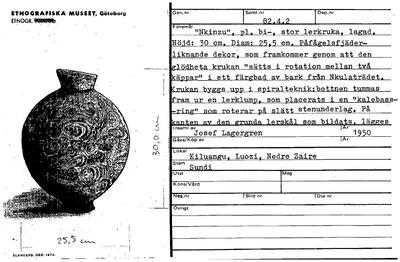 ETNOGRAFISKA MUSEET, Göteborg
ETNOGR.
Gen.nr
Saml.nr
Dep.nr
82.4.2
Föremål
"Nkinzu", pl. bi-, stor lerkruka, lagad.
Höjd: 30 cm. Diam: 25,5 cm. Påfågelsfjäder-
liknande dekor, som framkommer genom att den
glödheta krukan "sätts i rotation mellan två
käppar" i ett färgbad av bark från Nkulaträdet.
Krukan byggs upp i spiralteknik:bottnen tummas
fram ur en lerklump, som placerats i en "kalebass-
ring" som roterar på slätt stenunderlag. På
kanten av den grunda lerskål som bildats, lägges
Insaml av
År
Josef Lagergren
1950
Gåva/Köp av
År
Lokal
Kiluangu, Luozi, Nedre Zaire
Stam
Sundi
Utst
Mag
Kons/Vård
Neg.nr
Bild nr
Dia nr
Övrigt
30,0 cm
25,5 cm
ELANDERS, GBG, 1974.